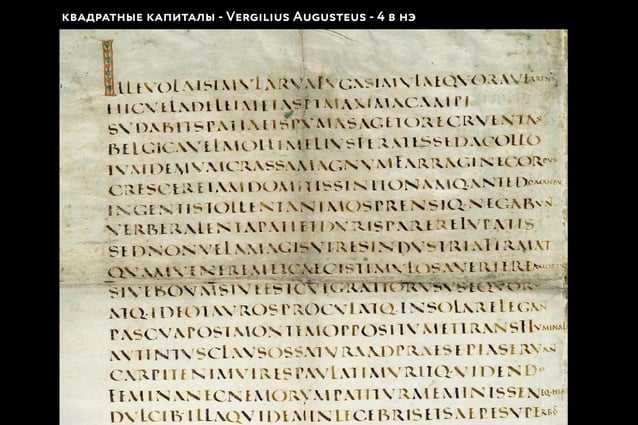 квадратные капиталы - Vergilius Augusteus - 4 в нэ
ILLEVOLATSIMVLARVAFVGASIMVLAEQVORAVERRENS
HICVELADELEIMETASETMAXIMACAMPI
SVDABITSPATIAETSPVMASAGETORECRVENTAS
BELGICAVELMOLLIMELIVSFERATESSEDACOLLO
TVMDEMVMCRASSAMAGNVMFARRAGINECORPVS
CRESCEREIAMDOMITISSINITONAMQ·ANTEDOMANDV
INGENTISTOLLENTANIMOSPRENSIQ·NEGABVN
VERBERALENTAPATIETDVRISPARERELVPATIS
SEDNONVLLAMAGISVIRESINDVSTRIAFIRMAT
QVAMVENEREMETCAECISTIMVLOSAVERTEREAMORIS
SIVEBOVMSIVEESTCVIGRATIORVSVSEQVOR
ATQ·IDEOTAVROSPROCVLATQ·INSOLARELEGAN
PASCVAPOSTMONTEMOPPOSITVMETTRANSFLVMINALA
AVTINTVSCLAVSOSSATVRAADPRAESEPIASERVAN
CARPITENIMVIRESPAVLATIMVRITQ·VIDENDO
FEMINANECNEMORVMPATITVRMEMINISSENEQ·HER
DVLCIBILLAQVIDEMINLECEBRISETSAEPESVPERBO